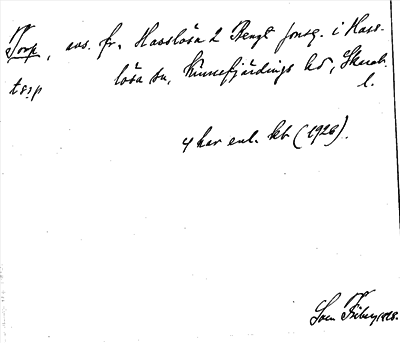 Torp, avs. fr. Hasslösa 2 Bengt Jonsg. i Hass-
torp lösa sn, Kinnefjärdings hd, Skarab.
l.
4 har enl. kb (1926).
Sven Fiiberg 1928.